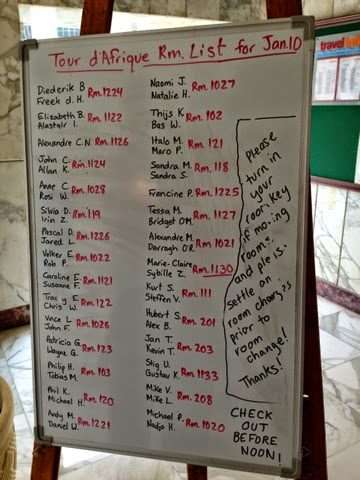 Tour d'Afrique Rm. List for Jan.10
Diederik B
Freek d. H.
Rm.1224
Elizabeth B.
Alastair I.
Rm. 1122
Alexandre C.N Rm. 1126
John C.
Allan K.
Rm. 1124
Anne C.
Rosi W.
Rm. 1028
Silvia D.
Irin Z.
Rm. 119
Pascal D.
Jared L.
Rm. 1226
Volker E.
Rob P.
Rm. 1022
Caroline E.
Susanne F.
Rm. 1121
Tracy E.
Chris W.
Rm. 122
Vince L.
John F.
Rm. 1026
Patricia G.
Wayne G.
Rm. 123
Philip H.
Tobias M.
Rm. 103
Phil K.
Michael H.
Rm. 120
Andy M.
Daniel W.
Rm. 1221
Naomi J.
Natalie H.
Rm. 1027
Thijs K.
Bas W.
Rm. 102
Italo M.
Maro P.
Rm. 121
Sandra M.
Sandra S.
Rm. 118
Francine P. Rm. 1225
Tessa M.
Bridget O'M.
Rm. 1127
Alexandre M.
Darragh O'R.
Rm. 1021
Marie-Claire
Sybille Z.
Rm. 1130
Kurt S.
Steffen V.
Rm. 111
Hubert S.
Alex B.
Rm. 201
Jan T.
Kevin T.
Rm. 203
Stig U.
Gustav K.
Rm. 1133
Mike V.
Mike L.
Rm. 208
Michael P.
Nadja H.
Rm. 1020
Please
turn in
your
room key
if moving
rooms.
and pleis.
settle an
room charges
prior to
room
change!
Thanks!
CHECK
OUT
BEFORE
NOON!